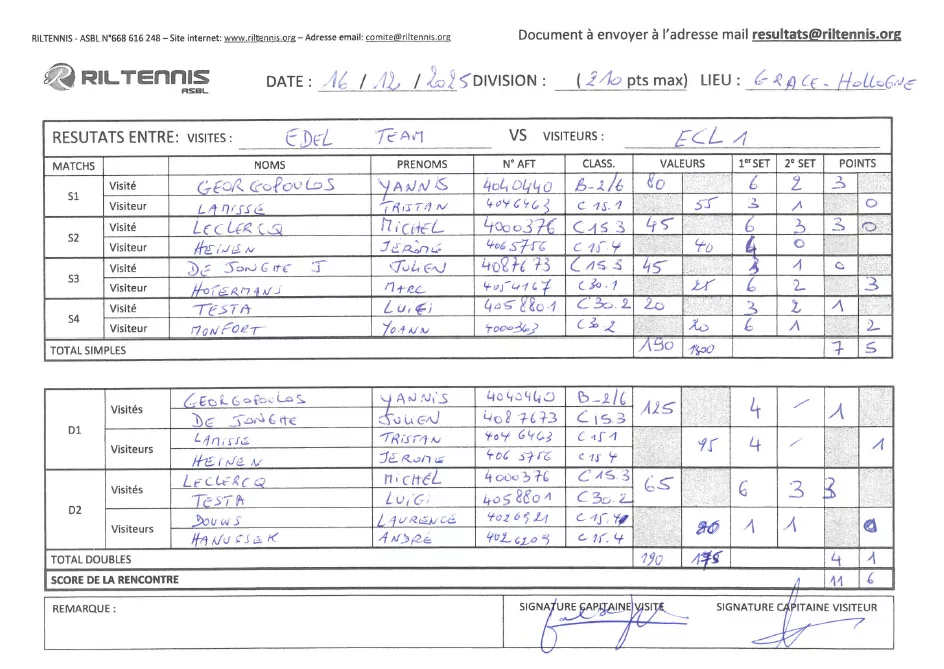 RILTENNIS - ASBL N°668 616 248 – Site internet: www.riltennis.org – Adresse email: comite@riltennis.org
Document à envoyer à l'adresse mail resultats@riltennis.org
RILTENNIS ASBL
DATE : 16 / 12 / 2025 DIVISION : (210 pts max) LIEU : GRACE-HOLLOGNE
RESUTATS ENTRE: VISITES : EDEL TEAM VS VISITEURS : ECL 1
MATCHS NOMS PRENOMS N° AFT CLASS. VALEURS 1er SET 2e SET POINTS
S1 Visité GEORGOPOULOS YANNIS 4040440 B-2/6 80 6 2 3
Visiteur LAMISSE TRISTAN 4046463 C 15.1 55 3 1 0
S2 Visité LECLERCQ MICHEL 4000376 C 15 3 45 6 3 3 0
Visiteur HEINEN JEROME 4065756 C 15.4 40 4 0
S3 Visité DE JONGHE J JULIEN 4087673 C 15 3 45 3 1 0
Visiteur HOTERMANS MARC 4054167 C 30.1 25 6 2 3
S4 Visité TESTA LUIGI 4058801 C 30.2 20 3 2 1
Visiteur MONFORT YOANN 4000363 C 30 2 20 6 1 2
TOTAL SIMPLES 190 7 5
D1 Visités GEORGOPOULOS YANNIS 4040440 B-2/6 125 4 / 1
DE JONGHE JULIEN 4087673 C 15.3
Visiteurs LAMISSE TRISTAN 404 6463 C 15 1 95 4 / 1
HEINEN JEROME 406 5756 C 15 4
D2 Visités LECLERCQ MICHEL 4000376 C 15.3 65 6 3 3
TESTA LUIGI 4058801 C 30.2
Visiteurs DOUWS LAURENCE 4026921 C 15.4 80 1 1 0
HANUSSEK ANDRÉ 4026209 C 15.4
TOTAL DOUBLES 190 175 4 1
SCORE DE LA RENCONTRE 11 6
REMARQUE : SIGNATURE CAPITAINE VISITE SIGNATURE CAPITAINE VISITEUR